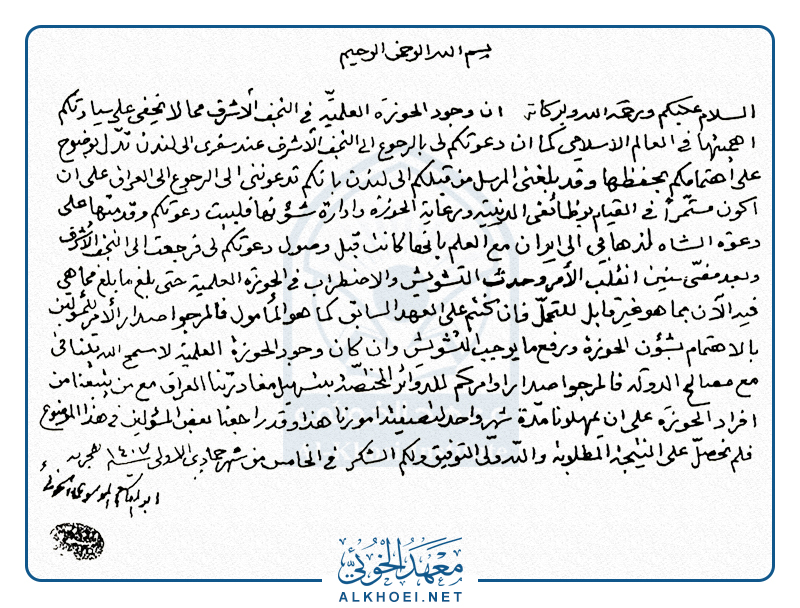 بسم الله الرحمن الرحيم
السلام عليكم ورحمة الله وبركاته ان وجود الحوزة العلمية في النجف الأشرف مما لا يخفى على سيادتكم
اهميتها في العالم الاسلامي كما ان دعوتكم لي بالرجوع الى النجف الأشرف عند سفري الى لندن تدل بوضوح
على اهتمامكم بحفظها وقد بلغني المرسل من قبلكم الى لندن بانكم تدعونني الى الرجوع الى العراق على ان
اكون مستمراً في القيام بوظائفي الدينية ورعاية الحوزة وادارة شؤونها فلبيت دعوتكم وقدمتها على
دعوة الشاه لذهابي الى ايران مع العلم بانها كانت قبل وصول دعوتكم لي فرجعت الى النجف الأشرف
وبعد مضي سنين انقلب الأمر وحدث التشويش والاضطراب في الحوزة العلمية حتى بلغ ما بلغ مما هي
فيه الآن بما هو غير قابل للتحمل فان كنتم على العهد السابق كما هو المأمول فالمرجو اصدار الأمر للمسؤولين
بالاهتمام بشؤون الحوزة ورفع ما يوجب التشويش وان كان وجود الحوزة العلمية لا سمح الله تنافي
مع مصالح الدولة فالمرجو اصدار اوامركم للدوائر المختصة بتسهيل مغادرتنا العراق مع من يتبعنا من
افراد الحوزة على ان يمهلونا مدة شهر واحد لتصفية امورنا هذا وقد راجعنا بعض المسؤولين في هذا الموضوع
فلم نحصل على النتيجة المطلوبة والله ولي التوفيق ولكم الشكر في الخامس من شهر جمادي الاولى سنة ١٤٠٧ هجرية
ابو القاسم الموسوي الخوئي
معهد الخوئي
ALKHOEI.NET